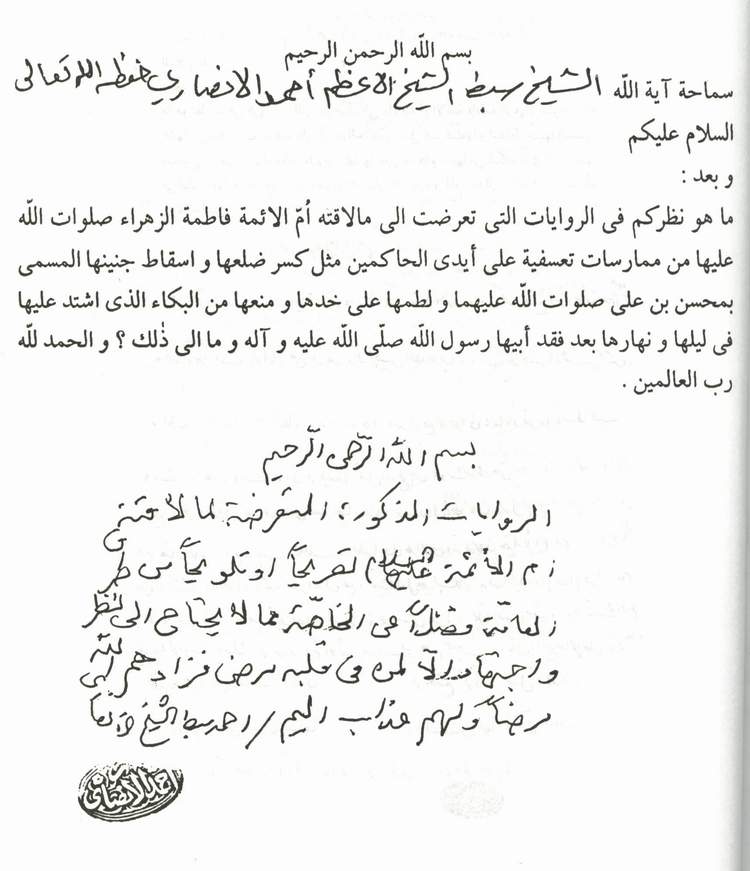 بسم الله الرحمن الرحيم
سماحة آية الله الشيخ سبط الشيخ الاعظم أحمد الانصاري حفظه الله تعالى
السلام عليكم
و بعد :
ما هو نظركم فى الروايات التى تعرضت الى مالاقته اُمّ الائمة فاطمة الزهراء صلوات الله
عليها من ممارسات تعسفية على أيدى الحاكمين مثل كسر ضلعها و اسقاط جنينها المسمى
بمحسن بن على صلوات الله عليهما و لطمها على خدها و منعها من البكاء الذى اشتد عليها
فى ليلها و نهارها بعد فقد أبيها رسول الله صلّى الله عليه و آله و ما الى ذٰلك ؟ و الحمد لله
رب العالمين .
بسم الله الرحمن الرحيم
الروايات المذكورة المتعرضة لما لاقته
اُم الأئمة عليها السلام تصريحاً او تلويحاً من طرق
العامّة فضلاً عن الخاصّة مما لا يحتاج الى نظر
واجتهاد الا لمن فى قلبه مرض فزادهم الله
مرضاً ولهم عذاب اليم / احمد سبط الشيخ الانصاري
احمد الأنصاري